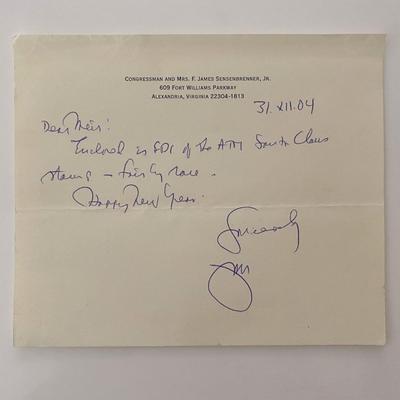 CONGRESSMAN AND MRS. F. JAMES SENSENBRENNER, JR.
609 FORT WILLIAMS PARKWAY
ALEXANDRIA, VIRGINIA 22304-1813
31.XII.04
Dear
Enclosed is FDC of the ATM Santa Claus
stamp – fairly rare.
Happy New Year.
Sincerely
Jim